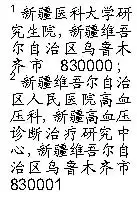 1 新疆医科大学研
究生院, 新疆维吾
尔自治区乌鲁木
齐市 830000;
2 新疆维吾尔自治
区人民医院高血
压科, 新疆高血压
诊断治疗研究中
心, 新疆维吾尔自
治区乌鲁木齐市
830001